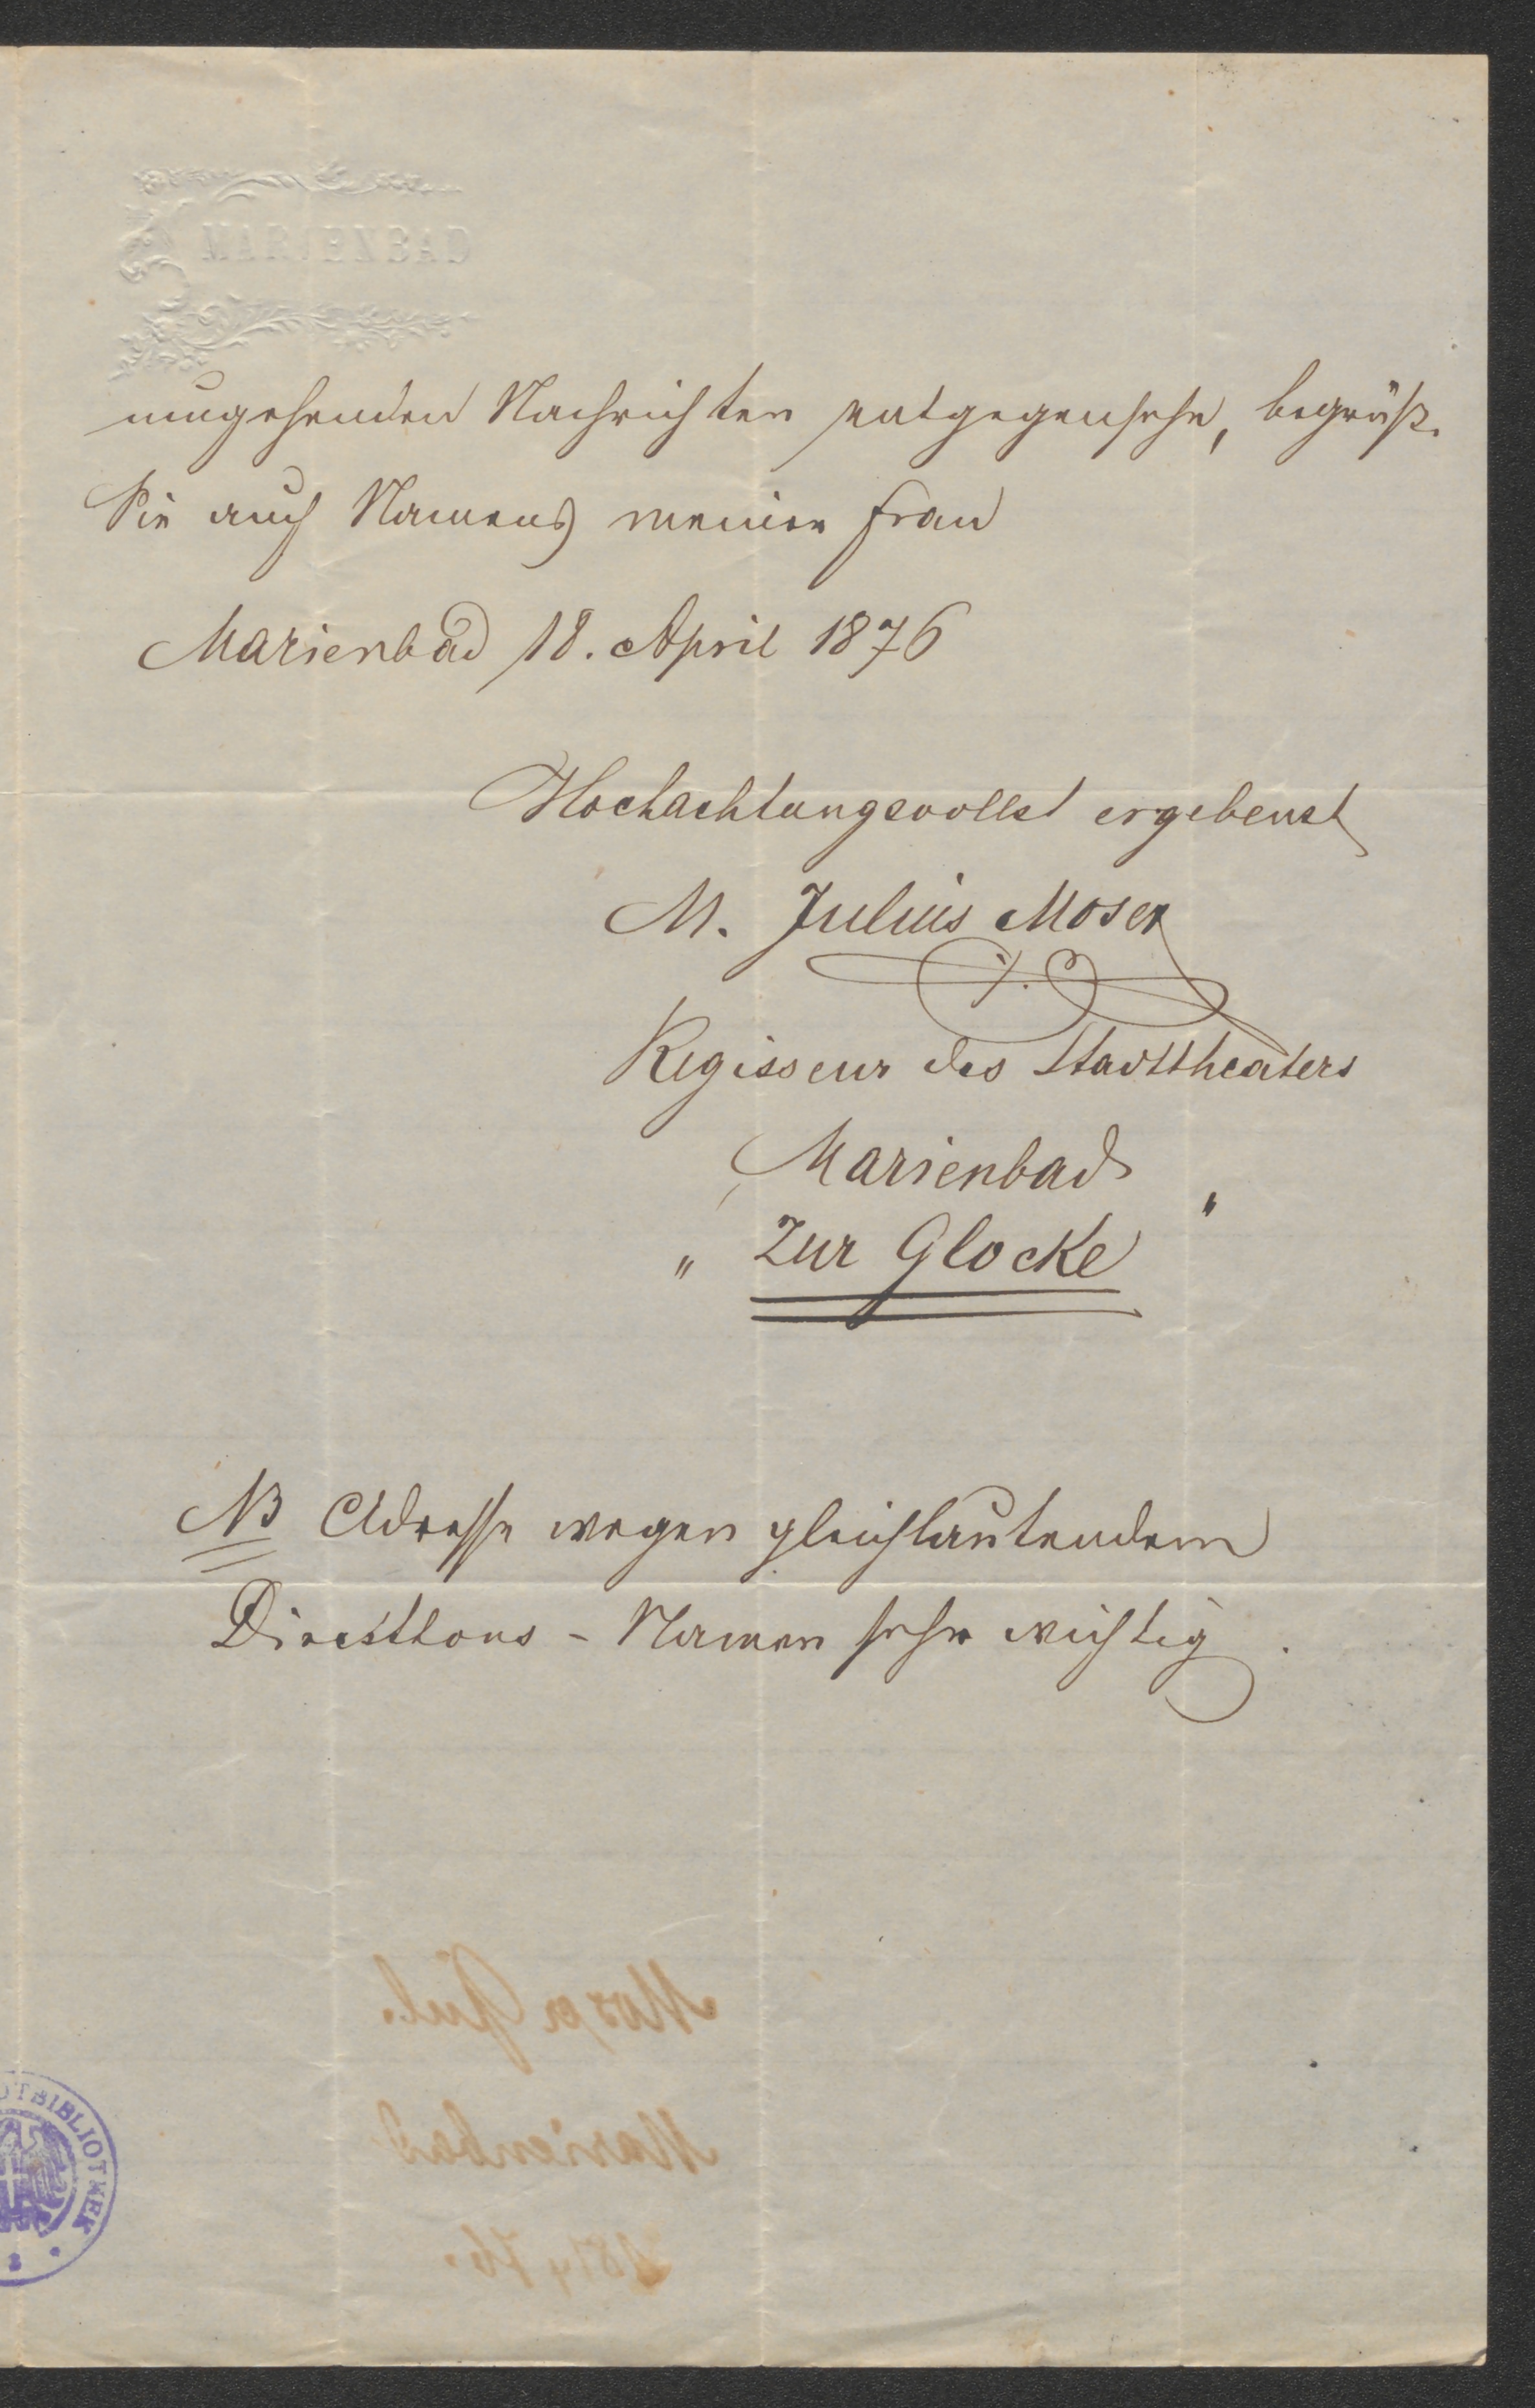 MARIENBAD
umgehenden Nachrichten entgegensehe, begrüße
Sie auch Namens meiner Frau
Marienbad 18. April 1876
Hochachtungsvollst ergebenst
M. Julius Moser
Regisseur des Stadttheaters
Marienbad
„ Zur Glocke "
NB Adresse wegen gleichlautendem
Direktions - Namen sehr wichtig.
Moser Jul.
Marienbad
18/4 76.
DTBIBLIOTHEK